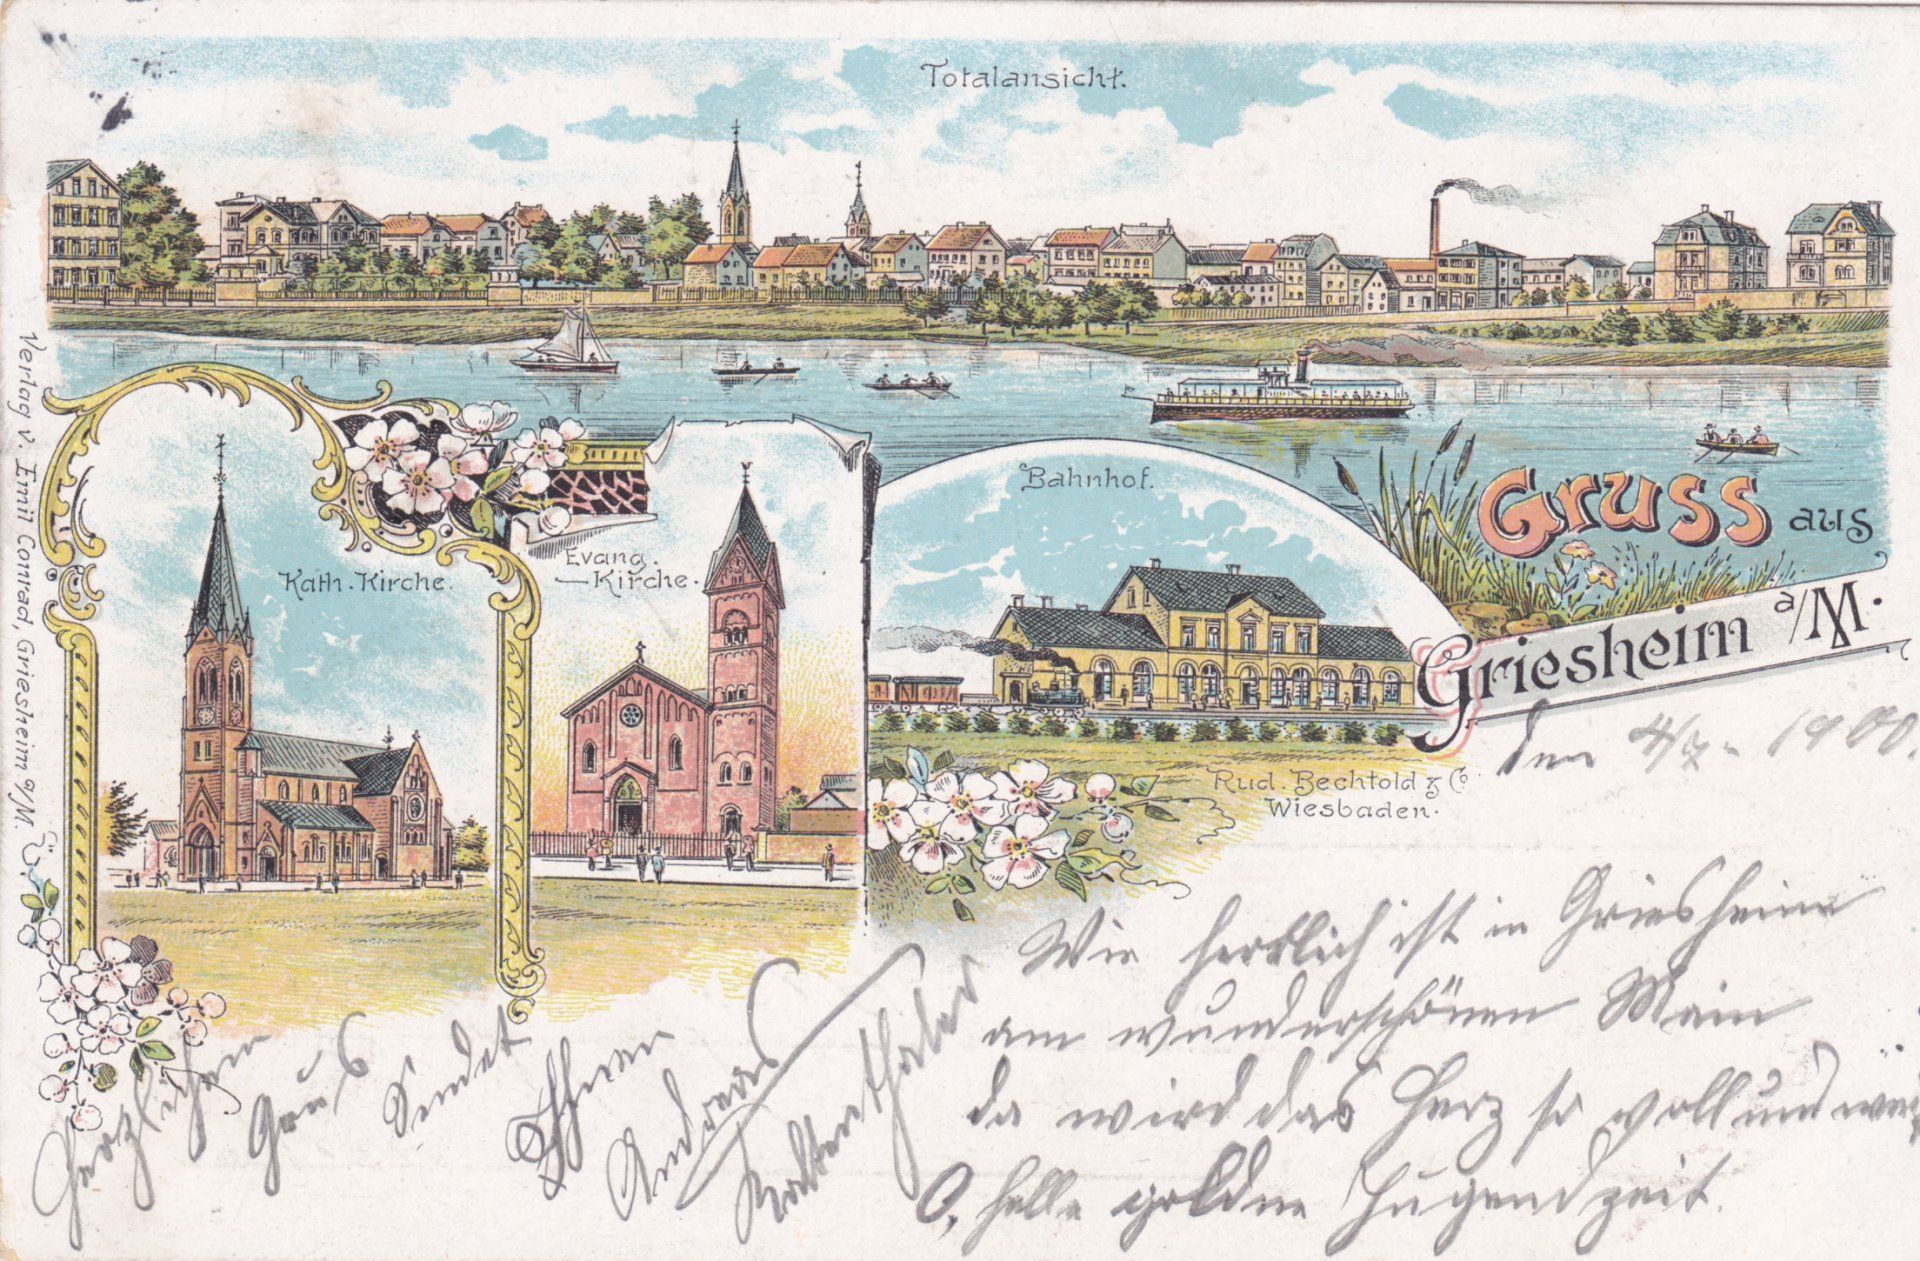 Totalansicht.
Verlag v. Emil Conrad, Griesheim a/M.
Kath. Kirche.
Evang.
Kirche.
Bahnhof.
Gruss aus
Griesheim a/M.
Rud. Bechtold & Co.
Wiesbaden.
den 4/7 - 1900.
Wie herrlich ist in Griesheim
am wunderschönen Main
da wird das Herz so voll und
O, helle goldne Jugendzeit.
Herzlichen
Grus
Sendet
Ihnen
Andreas
Kaltenthaler